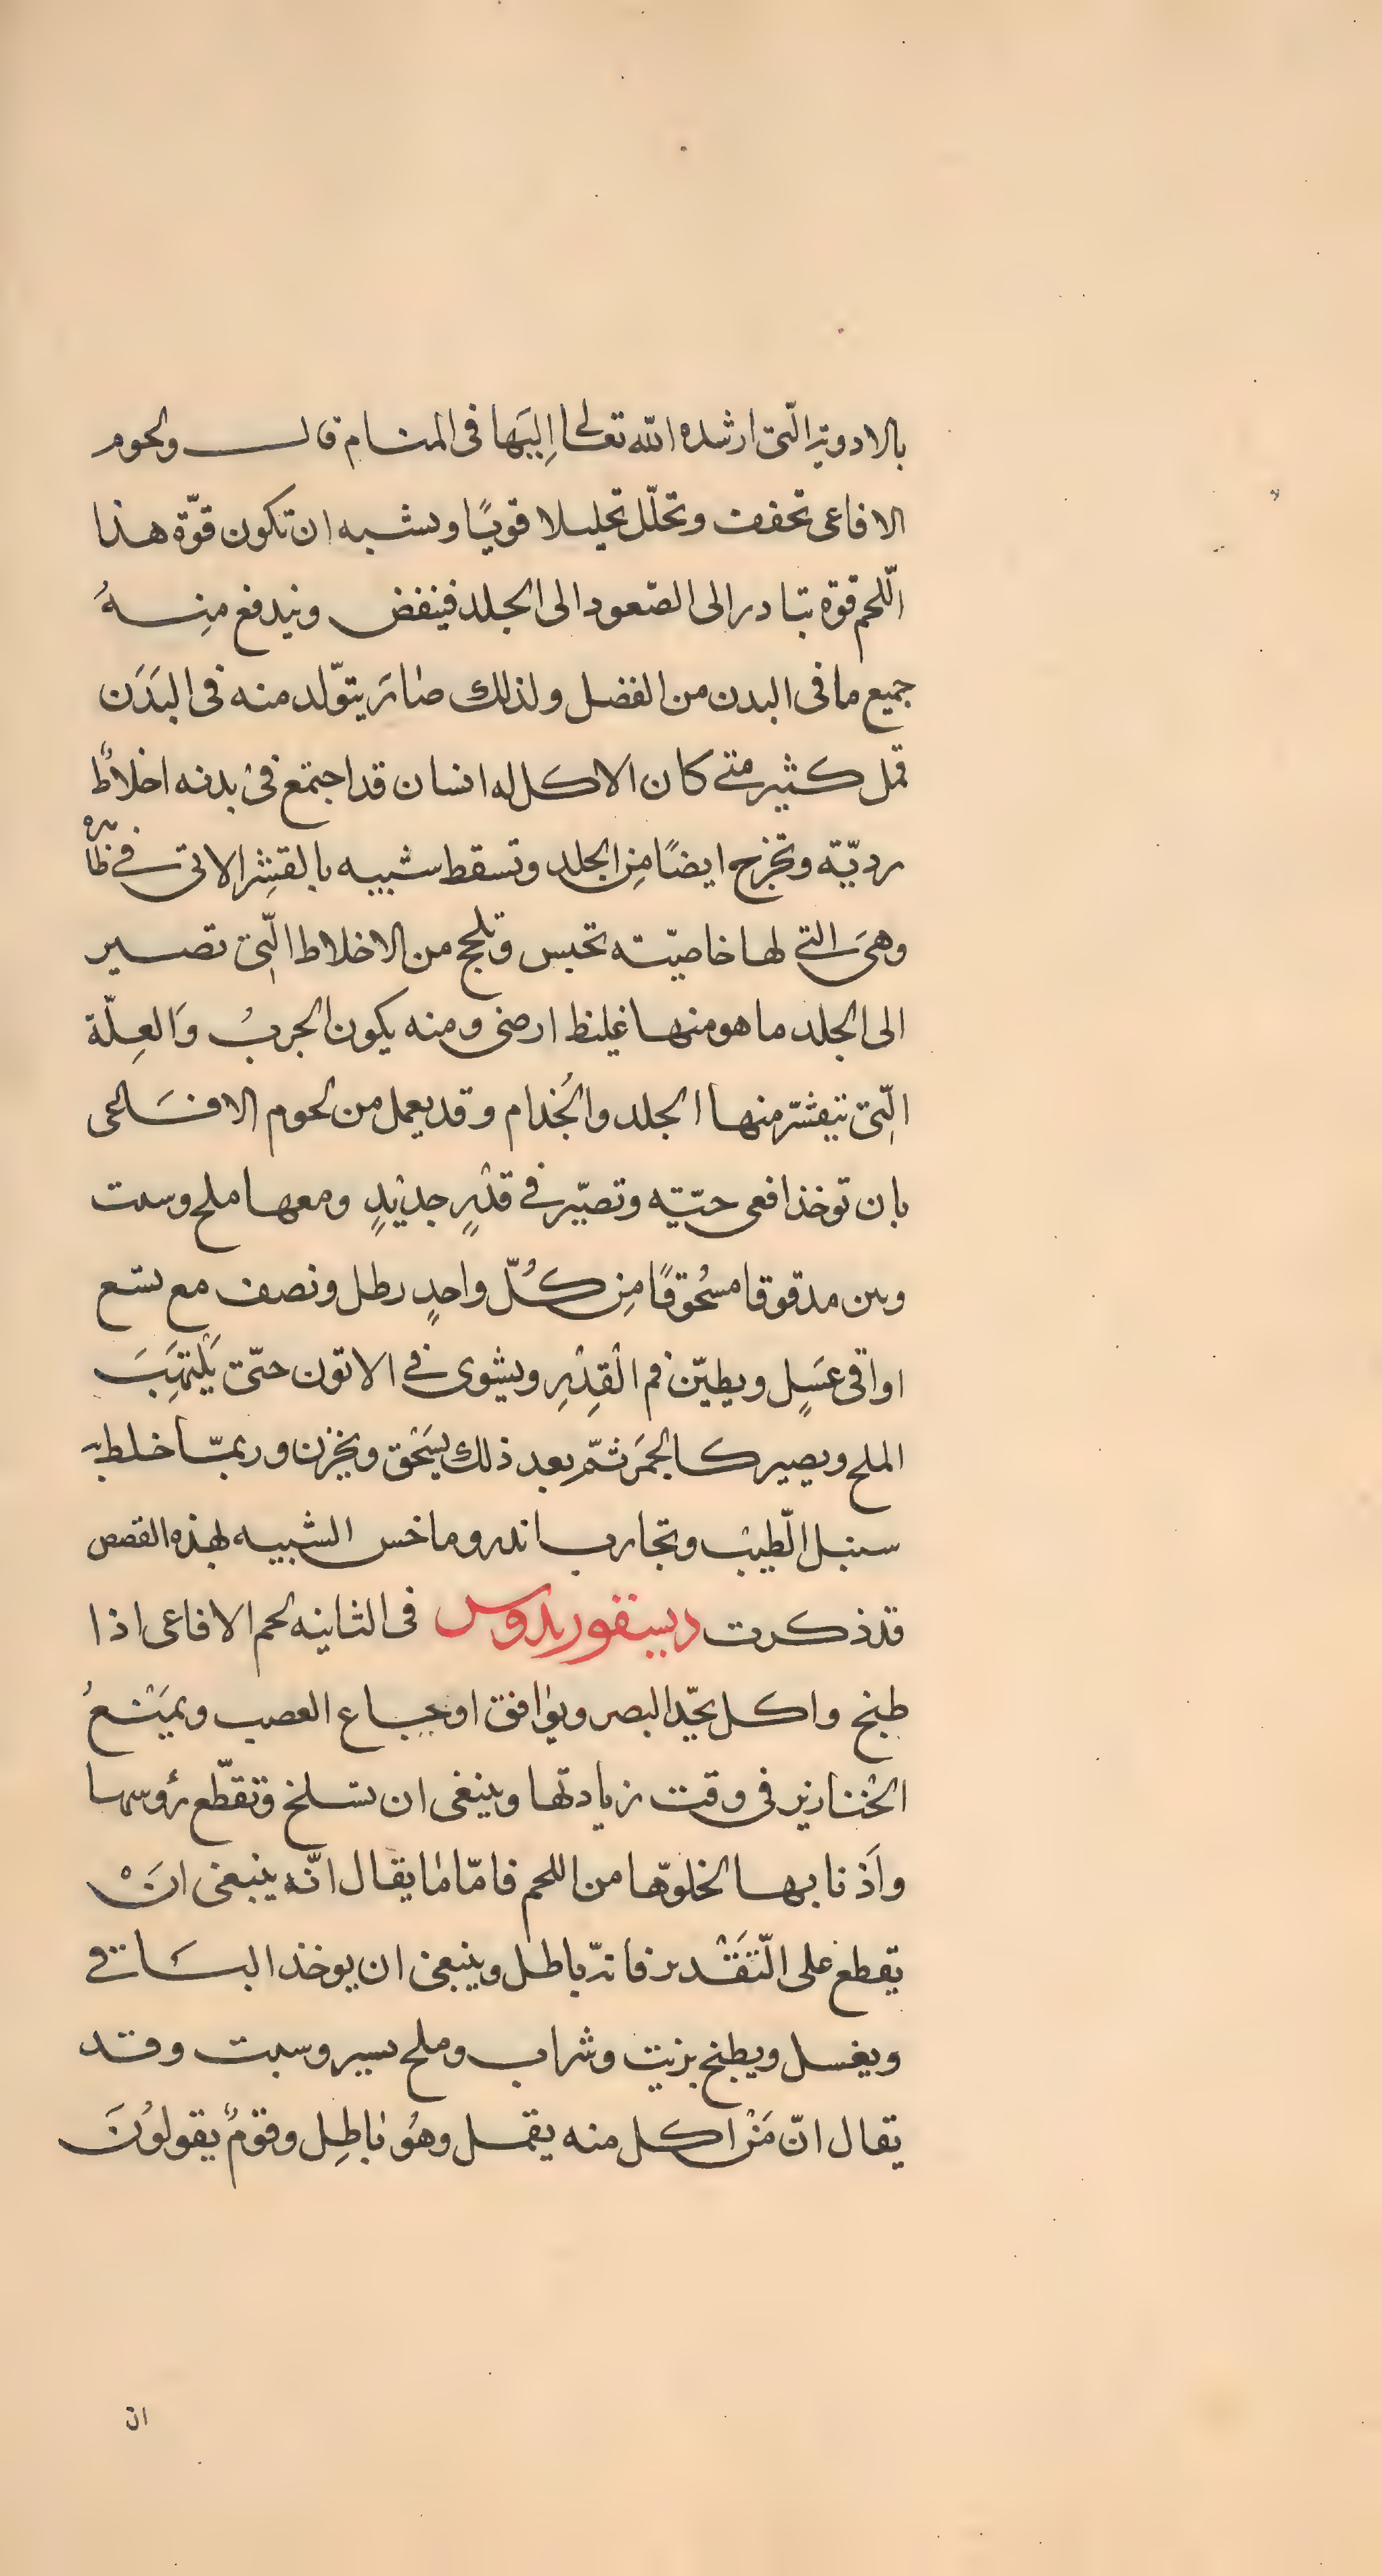 بالادوية الّتى ارشده الله تعالى اِليَها فى المنام قال ولحوم
الافاعى تجفف وتحلّل تحليلا قويًا ويشبه ان تكون قوّة هذا
الّلحم قوّة تبادر الى الصّعود الى الجلد فينفض ويندفع مِنهُ
جميع ما فى البدن من الفضل ولذلك صارَ يتوّلد منه فى البَدَن
قمل كثير متى كان الاكل له انسان قد اجتمع فى بدنه اخلاطٌ
رديّة وتخرج ايضًا مِن الجلد وتسقط شبيه بالقشِر الاتى فى ظاهره
وهىَ التى لها خاصيّته تحبس وتلحج من الاخلاط الّتِى تصير
الى الجلد ما هو منها غليظ ارضى ومنه يكون الجربُ وَالعِلّة
الّتِى تيقشّر منها الجلد والجُذام وقد يعمل من لحوم الافَاعى
بان توخذ افعى حيّته وتصيّر فى قدْرٍ جديْدٍ ومعها ملح وسىت
وىىن مدقوقا مسُحوقًا مِن كُلّ واحدٍ رطل ونصف مع تسع
اواقى عسَلٍ ويطيّن فم القِدْرِ ويشوى فى الاتون حتّى يَلْتهِبَ
الملح ويصير كالجمَر ثمّ بعد ذلك يسَحْق ويخزن وربمّا خلط به
سنبل الّطيب وتجارب اندروماخس الشبيه لهذه القصص
قد ذكرت ديسقوريدوس فى الثانيه لحم الافاعى اذا
طبخ واكل يحّد البصر ويوافق اوجاع العصب ويمَنْعُ
الخْنازير فى وقت زيادتها وينبغى ان تسلخ وتقطّع رؤسها
واَذنابها لخلوّها من اللحم فامّا ما يقال انّه ينبغى انَْ
يقطع على الّتَقْدير فانّه باطل وينبغى ان يوخذ البَاقى
ويغسل ويطبخ بزيت وشراب وملح يسير وسبت وقد
يقال انّ مَنْ اكل منه يقمل وهُو باطِل وقومٌ يقولوُنَ
ان